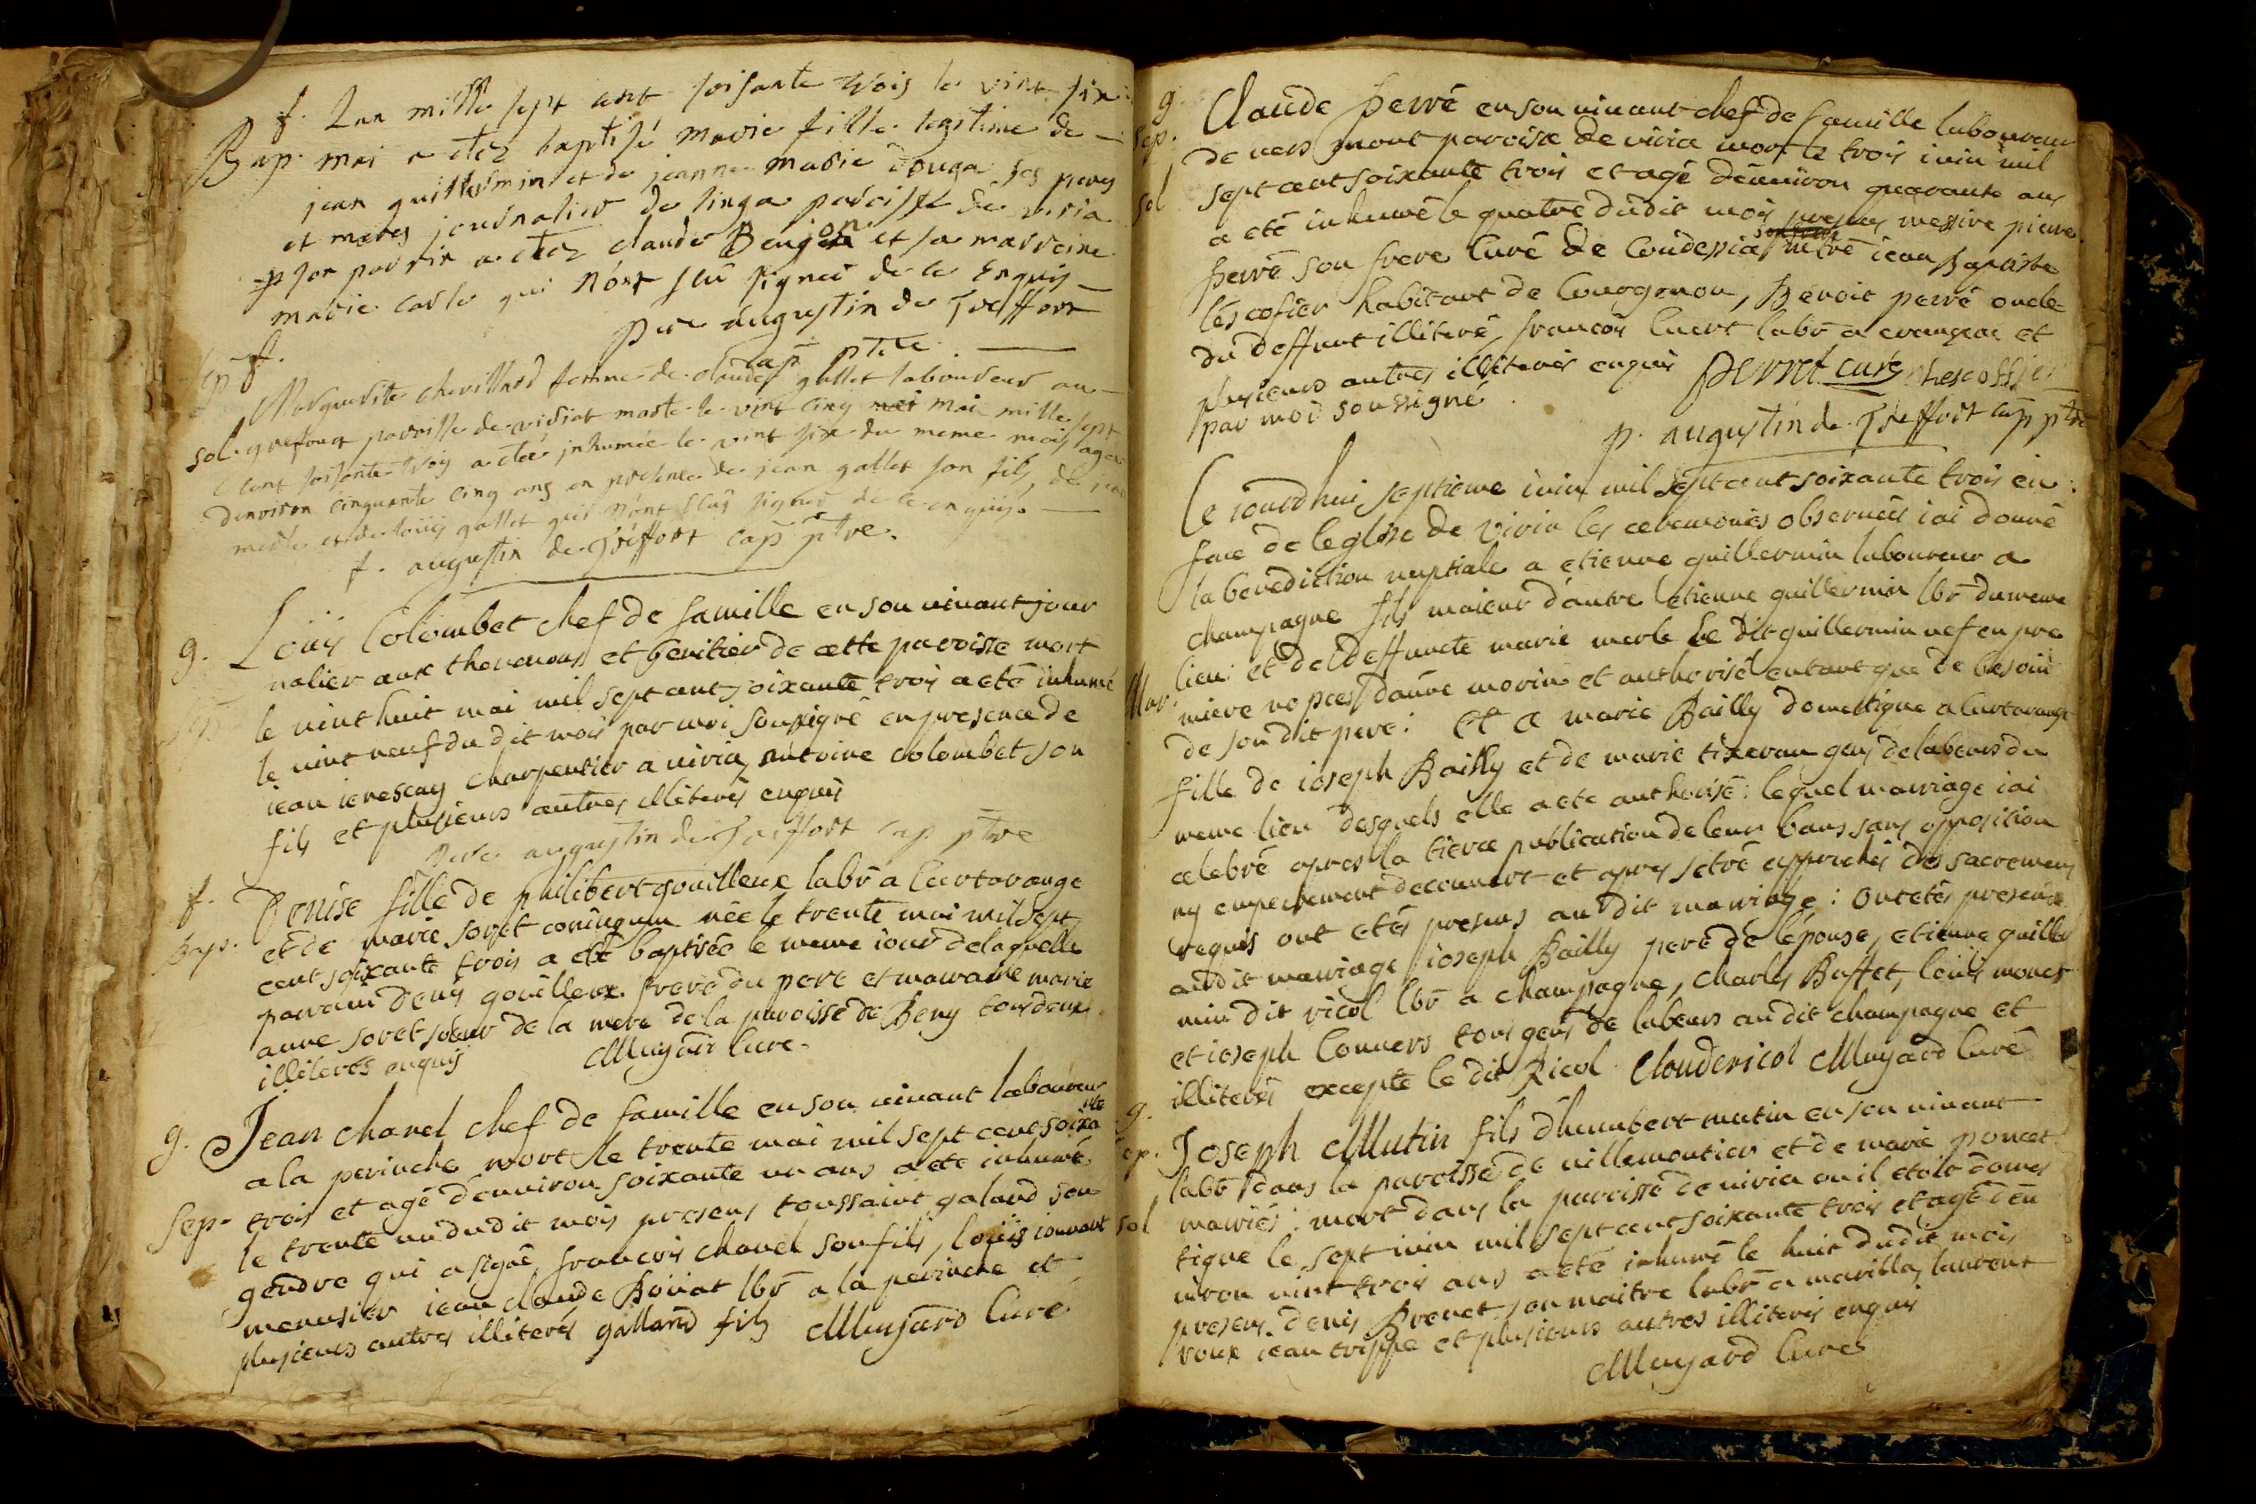 f. Lan mille sept cent soisante trois le vint six
Bap. mai a etez baptisé marie fille legitime de
jean guillermin et de jeanne marie douga ses peres
et meres journalier de linga paroisse de viria
son parrin a etez claude Beujon et sa marreine
marie carlo qui nont sçu signer de ce enquis
pere augustin de Treffort
cap. ptre
sep. f.
Marguerite chevillard femme de claude gallet laboureur au
sol. grefouet paroisse de viriat morte le vint cinq mai mille sept
cent soisante trois a eteé inhumée le vint six du meme mois agee
denviron cinquante cinq ans en presence de jean gallet son fils, de
et de louis gallet qui nont sçus signer de ce enquis.
f. augustin de Treffort cap. ptre.
g. Louis Colombet chef de famille en son vivant jour
nalier aux thevenons et benitier de cette paroisse mort
le vint huit mai mil sept cent soixante trois a eté inhumé
le vint neuf du dit mois par moi soussigné en presence de
iean ierescay charpentier a viria, antoine colombet son
fils et plusieurs autres illiterés enquis
Pere augustin de Treffort cap ptre
f. Denise fille de philibert gouilleux labr a Curtarange
Bap. et de marie soret coniquen née le trente mai mil sept
cent soixante trois a eté baptisée le meme iour de laquelle
parain denis gouilleux frere du pere et maraine marie
anne soret soeur de la mere de la paroisse de Beny tous deux
illiterés enquis Muyard Curé.
g. Jean chanel chef de famille en son vivant laboureur
a la perinche mort le trente mai mil sept cent soixante
Sep. trois et agé d'environ soixante un ans a eté inhumé
le trente un du dit mois presens toussaint galand son
gendre qui a signé, francois chanel son fils, louis iouvant
menusier iean claude Boirat lbr a la perinche et
plusieurs autres illiterés galland fils Muyard Curé
g. Claude perré en son vivant chef de famille laboureur
sep. de vers mont paroisse de viria mort le trois iuin mil
sol sept cent soixante trois et agé denviron quarante ans
a eté inhumé le quatre dudit mois presens messire pierre
perré son frere Curé de Condessia, mtre iean Baptiste
lescofier habitant de Courgenou, Benoit perré oncle
du deffunt illiteré, francois luert labr a craugeac et
plusieurs autres illiterés enquis perret curé lhescossier
par moi soussigné.
p. augustin de Treffort cap ptre
Ce iourdhui septieme iuin mil sept cent soixante trois en
face de leglise de viria les ceremonies observées iai donné
la benediction nuptiale a etienne guillermin laboureur a
champagne fils maieur d'autre etienne guillermin lbr du meme
lieu et de deffuncte marie merle le dit guillermin vef en pre
Mar. miere nopces danne morin et authorisé entant que de besoin
de son dit pere: Et a marie Bailly domestique a Curtarange
fille de ioseph Bailly et de marie tixeran gens de labeurs du
meme lieu desquels elle a eté authorisé: lequel marriage iai
celebré apres la tierce publication de leur bans sans opposition
ny empechement decouvert et apres setre approchés des sacremens
requis ont etés presens au dit mariage: ont etés presens
au dit marriage ioseph Bailly pere de lepouse, etienne guiller
min dit ricol lbr a champagne, charles Buffet, louis monet
et ioseph Convers tous gens de labeurs au dit champagne et
illiterés excepté le dit Ricol. Claude ricol Muyard Curé
g.
sep. Joseph Mutin fils d'humbert mutin en son vivant
labr dans la paroisse de villemoutier et de marie poncet
sol mariés: mort dans la paroisse de viria ou il etoit domes
tique le sept iuin mil sept cent soixante trois et agé d'en
viron vint trois ans a eté inhumé le huit dudit mois
presens denis Brevet son maitre labr a marilla, laurent
roux iean trippe et plusieurs autres illiterés enquis
Muyard Curé